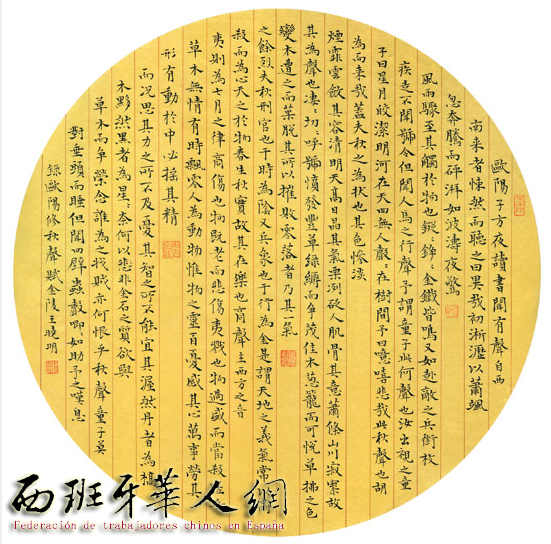 歐陽子方夜讀書聞有聲自西
南來者悚然而聽之曰異哉初淅瀝以蕭颯
忽奔騰而砰湃如波濤夜驚
風雨驟至其觸於物也鏦鏦錚錚金鐵皆鳴又如赴敵之兵銜枚
疾走不聞號令但聞人馬之行聲予謂童子此何聲也汝出視之童
子曰星月皎潔明河在天四無人聲在樹間予曰噫嘻悲哉此秋聲也胡
為而來哉蓋夫秋之為狀也其色慘淡
煙霏雲斂其容清明天高日晶其氣栗冽砭人肌骨其意蕭條山川寂寥故
其為聲也淒淒切切呼號憤發豐草綠縟而爭茂佳木蔥籠而可悅草拂之色
變木遭之而葉脫其所以摧敗零落者乃其一氣
之餘烈夫秋刑官也于時為陰又兵象也于行為金是謂天地之義氣常
殺而為心天之於物春生秋實故其在樂也商聲主西方之音
夷則為七月之律商傷也物既老而悲傷夷戮也物過盛而當殺
草木無情有時飄零人為動物惟物之靈百憂感其心萬事勞其
形有動於中必搖其精
而況思其力之所不及憂其智之所不能宜其渥然丹者為槁
木黟然黑者為星星奈何以悲非金石之質欲與
草木而爭榮念誰為之戕賊亦何恨乎秋聲童子莫
對垂頭而睡但聞四壁蟲聲唧唧如助予之嘆息
錄歐陽修秋聲賦金陵王曉明
西班牙華人網
Federación de trabajadores chinos en España